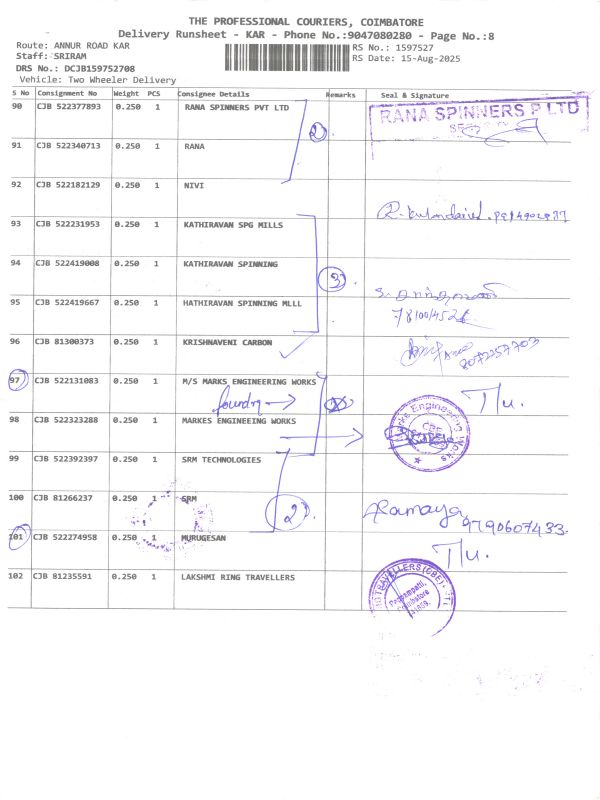 THE PROFESSIONAL COURIERS, COIMBATORE
Delivery Runsheet - KAR - Phone No.:9047080280 - Page No.:8
Route: ANNUR ROAD KAR RS No.: 1597527
Staff: SRIRAM RS Date: 15-Aug-2025
DRS No.: DCJB159752708
Vehicle: Two Wheeler Delivery
S No Consignment No Weight PCS Consignee Details Remarks Seal & Signature
90 CJB 522377893 0.250 1 RANA SPINNERS PVT LTD RANA SPINNERS P LTD
2
91 CJB 522340713 0.250 1 RANA
92 CJB 522182129 0.250 1 NIVI
93 CJB 522231953 0.250 1 KATHIRAVAN SPG MILLS
94 CJB 522419008 0.250 1 KATHIRAVAN SPINNING
3
95 CJB 522419667 0.250 1 HATHIRAVAN SPINNING MLLL
96 CJB 81300373 0.250 1 KRISHNAVENI CARBON
8072257703
97 CJB 522131083 0.250 1 M/S MARKS ENGINEERING WORKS
foundry T/u.
98 CJB 522323288 0.250 1 MARKES ENGINEEING WORKS Marks Engineering Works
99 CJB 522392397 0.250 1 SRM TECHNOLOGIES
100 CJB 81266237 0.250 1 SRM
2 Ramaya
9790607433
101 CJB 522274958 0.250 1 MURUGESAN T/u.
102 CJB 81235591 0.250 1 LAKSHMI RING TRAVELLERS TRAVELLERS (CBE)
Coimbatore